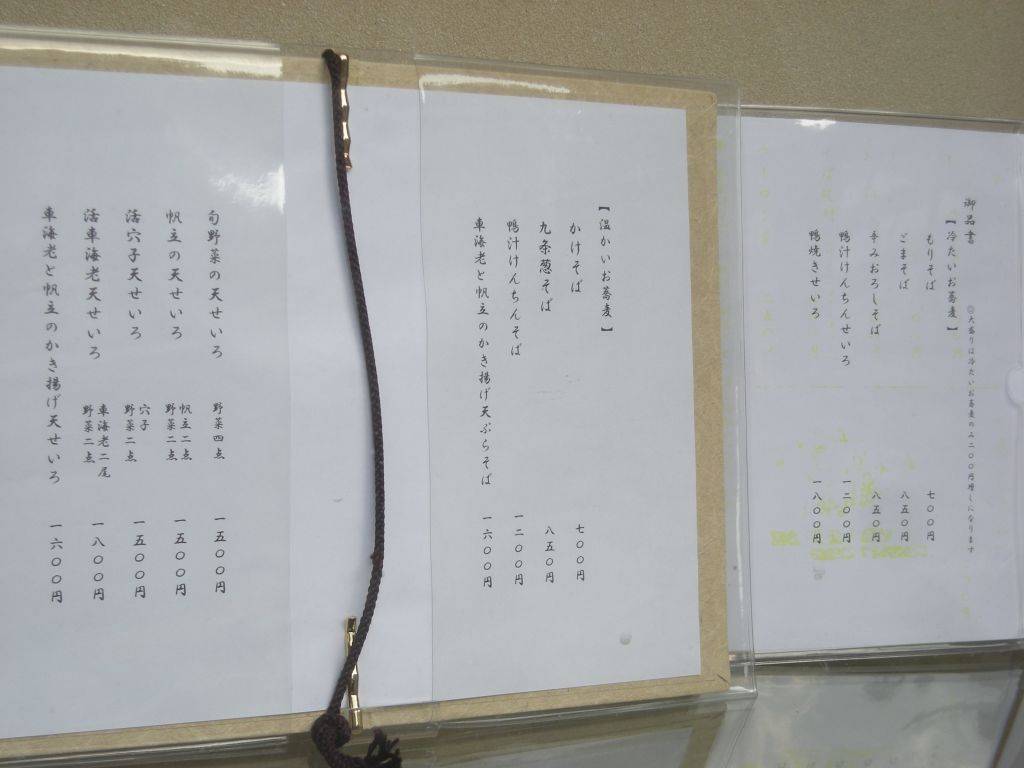 御品書
◎大盛りは冷たいお蕎麦のみ二〇〇円増しになります
【冷たいお蕎麦】
もりそば 七〇〇円
ごまそば 八五〇円
辛みおろしそば 八五〇円
鴨汁けんちんせいろ 一二〇〇円
鴨焼きせいろ 一八〇〇円
【温かいお蕎麦】
かけそば 七〇〇円
九条葱そば 八五〇円
鴨汁けんちんそば 一二〇〇円
車海老と帆立のかき揚げ天ぷらそば 一六〇〇円
旬野菜の天せいろ 野菜四点 一五〇〇円
帆立の天せいろ 帆立二点 野菜二点 一五〇〇円
活穴子天せいろ 穴子 野菜二点 一五〇〇円
活車海老天せいろ 車海老二尾 野菜二点 一八〇〇円
車海老と帆立のかき揚げ天せいろ 一六〇〇円